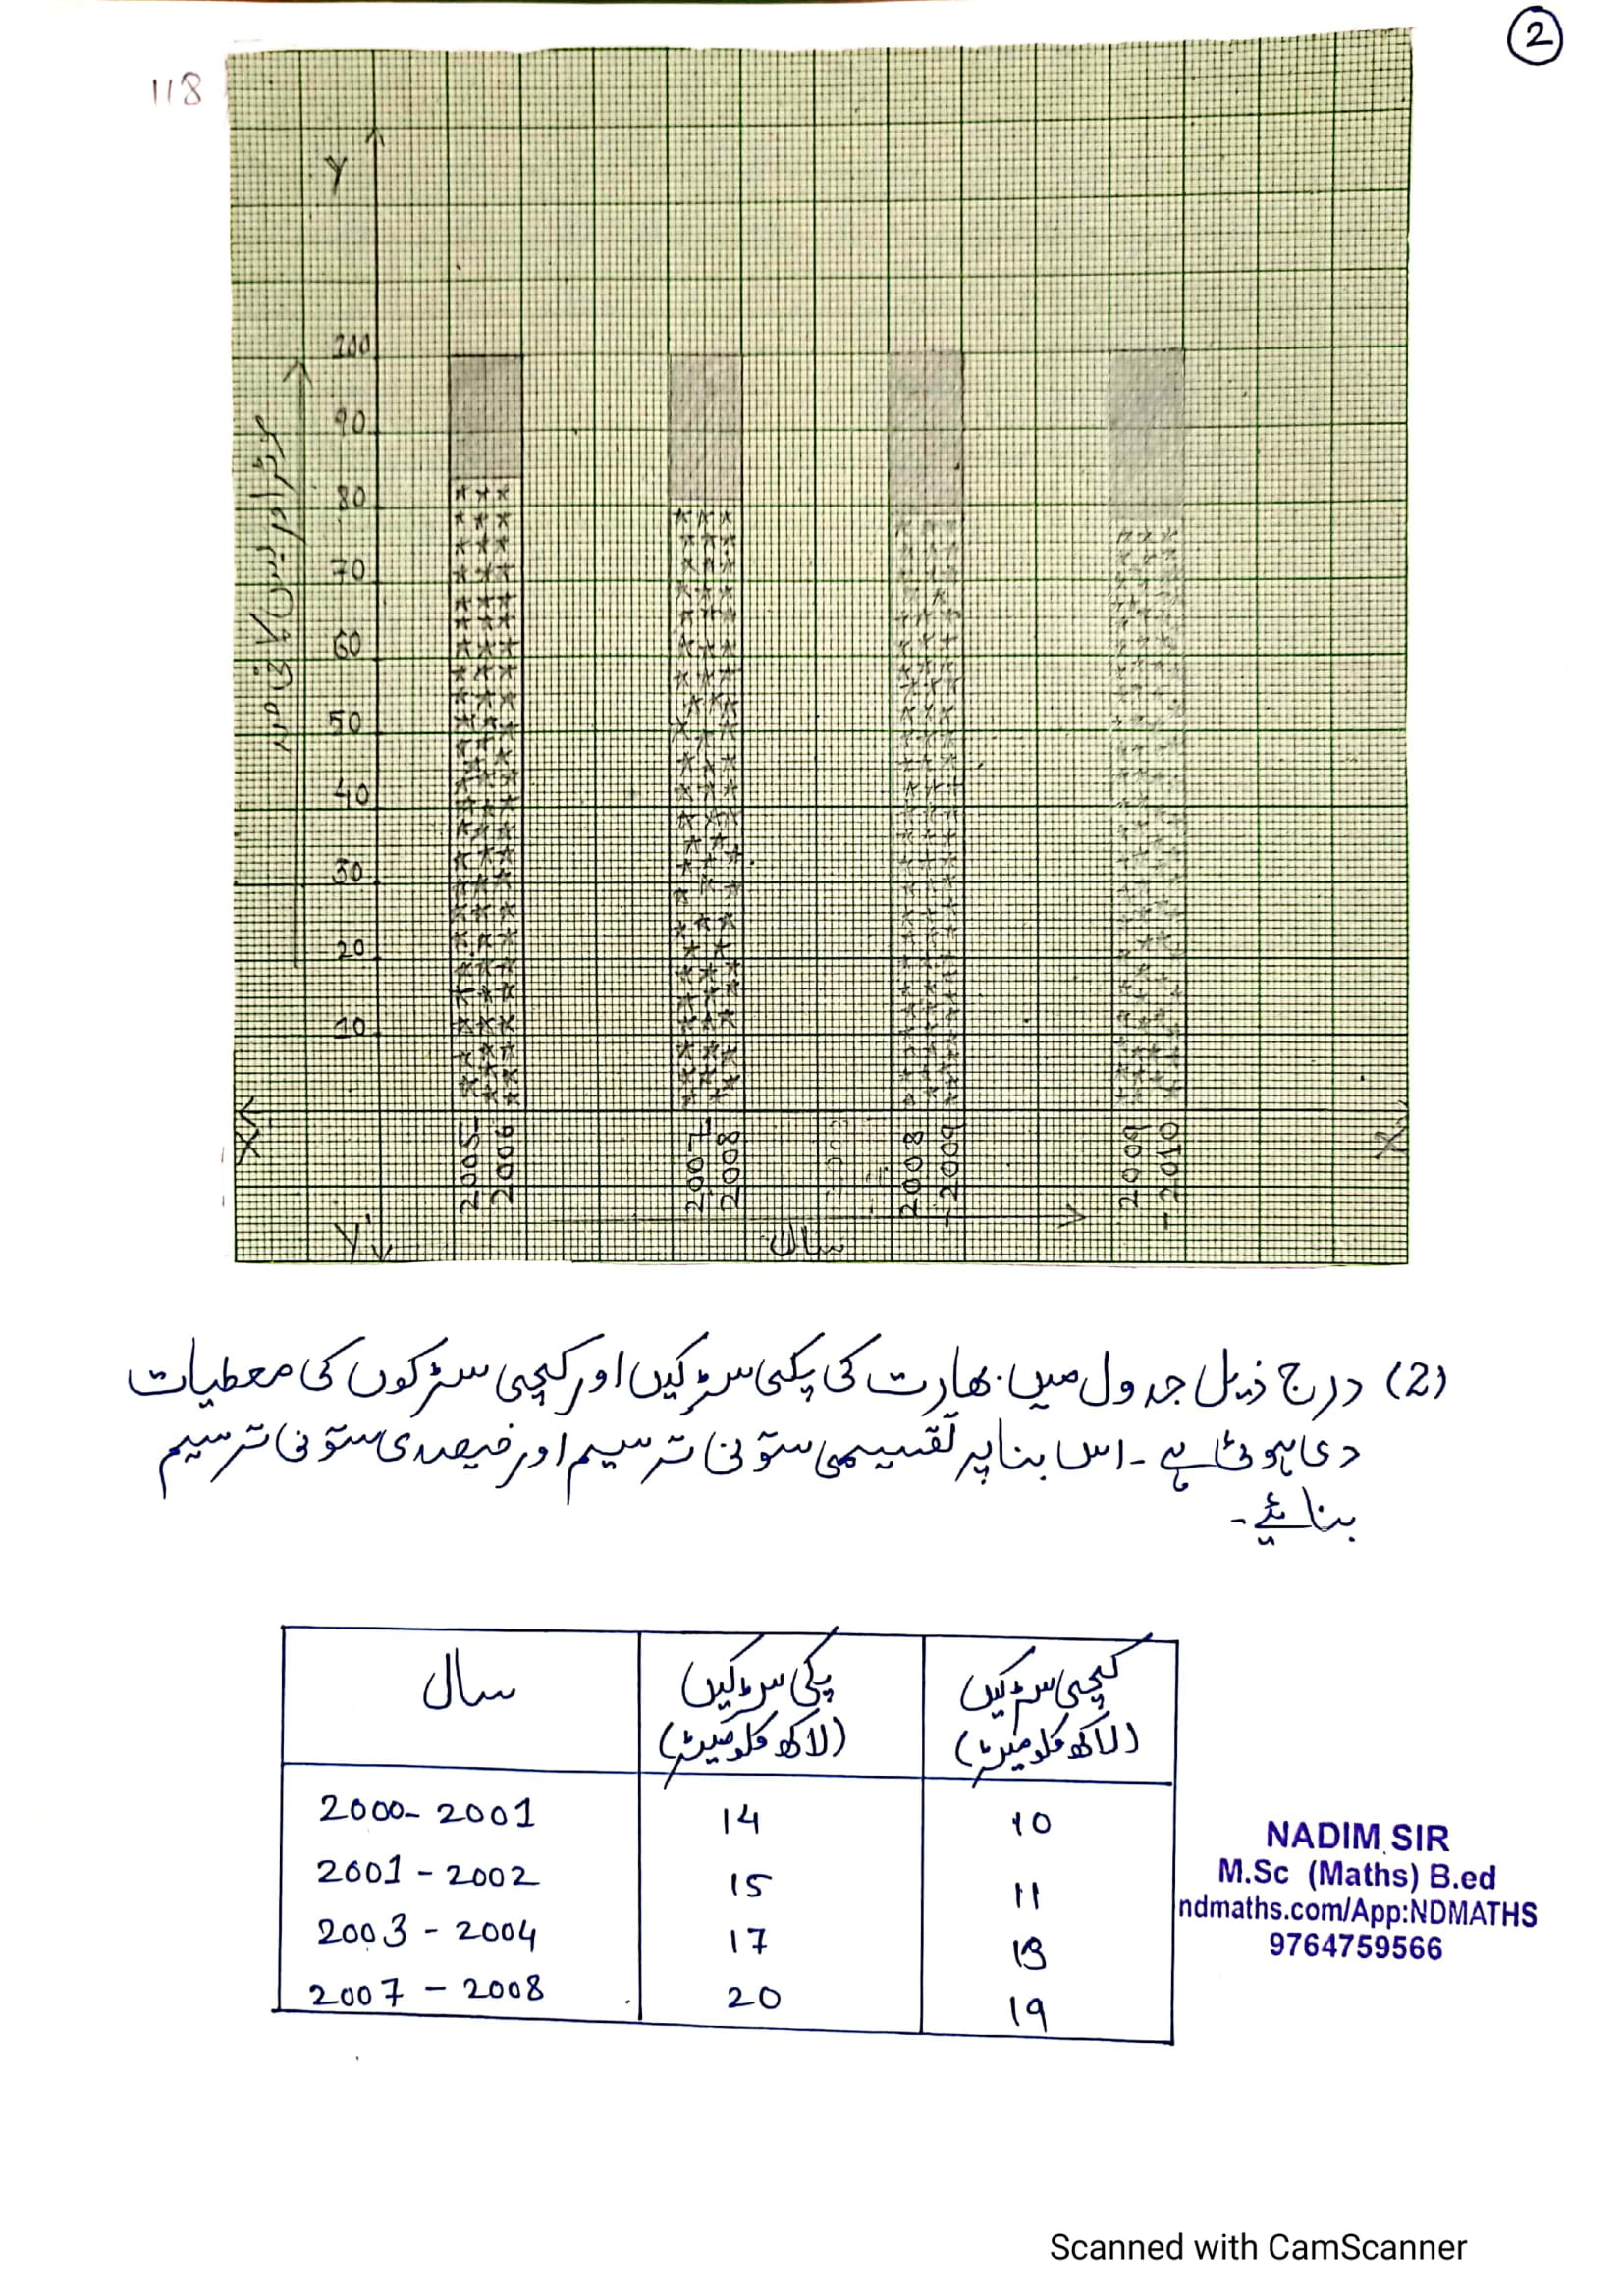 2
118
Y
100
90
80
70
60
50
40
30
20
10
X'
X
Y'
2005-
2006
2007-
2008
2008
-2009
2009
-2010
سال
(2) درج ذیل جدول میں بھارت کی پکی سڑکیں اور کچی سڑکوں کی معطیات
دی ہوئی ہے ۔ اس بنا پر تقسیمی ستونی ترسیم اور فیصدی ستونی ترسیم
بنائیے۔
سال پکی سڑکیں کچی سڑکیں
(لاکھ کلومیٹر) (لاکھ کلومیٹر)
2000-2001 14 10
2001-2002 15 11
2003-2004 17 13
2007-2008 20 19
NADIM SIR
M.Sc (Maths) B.ed
ndmaths.com/App:NDMATHS
9764759566
Scanned with CamScanner